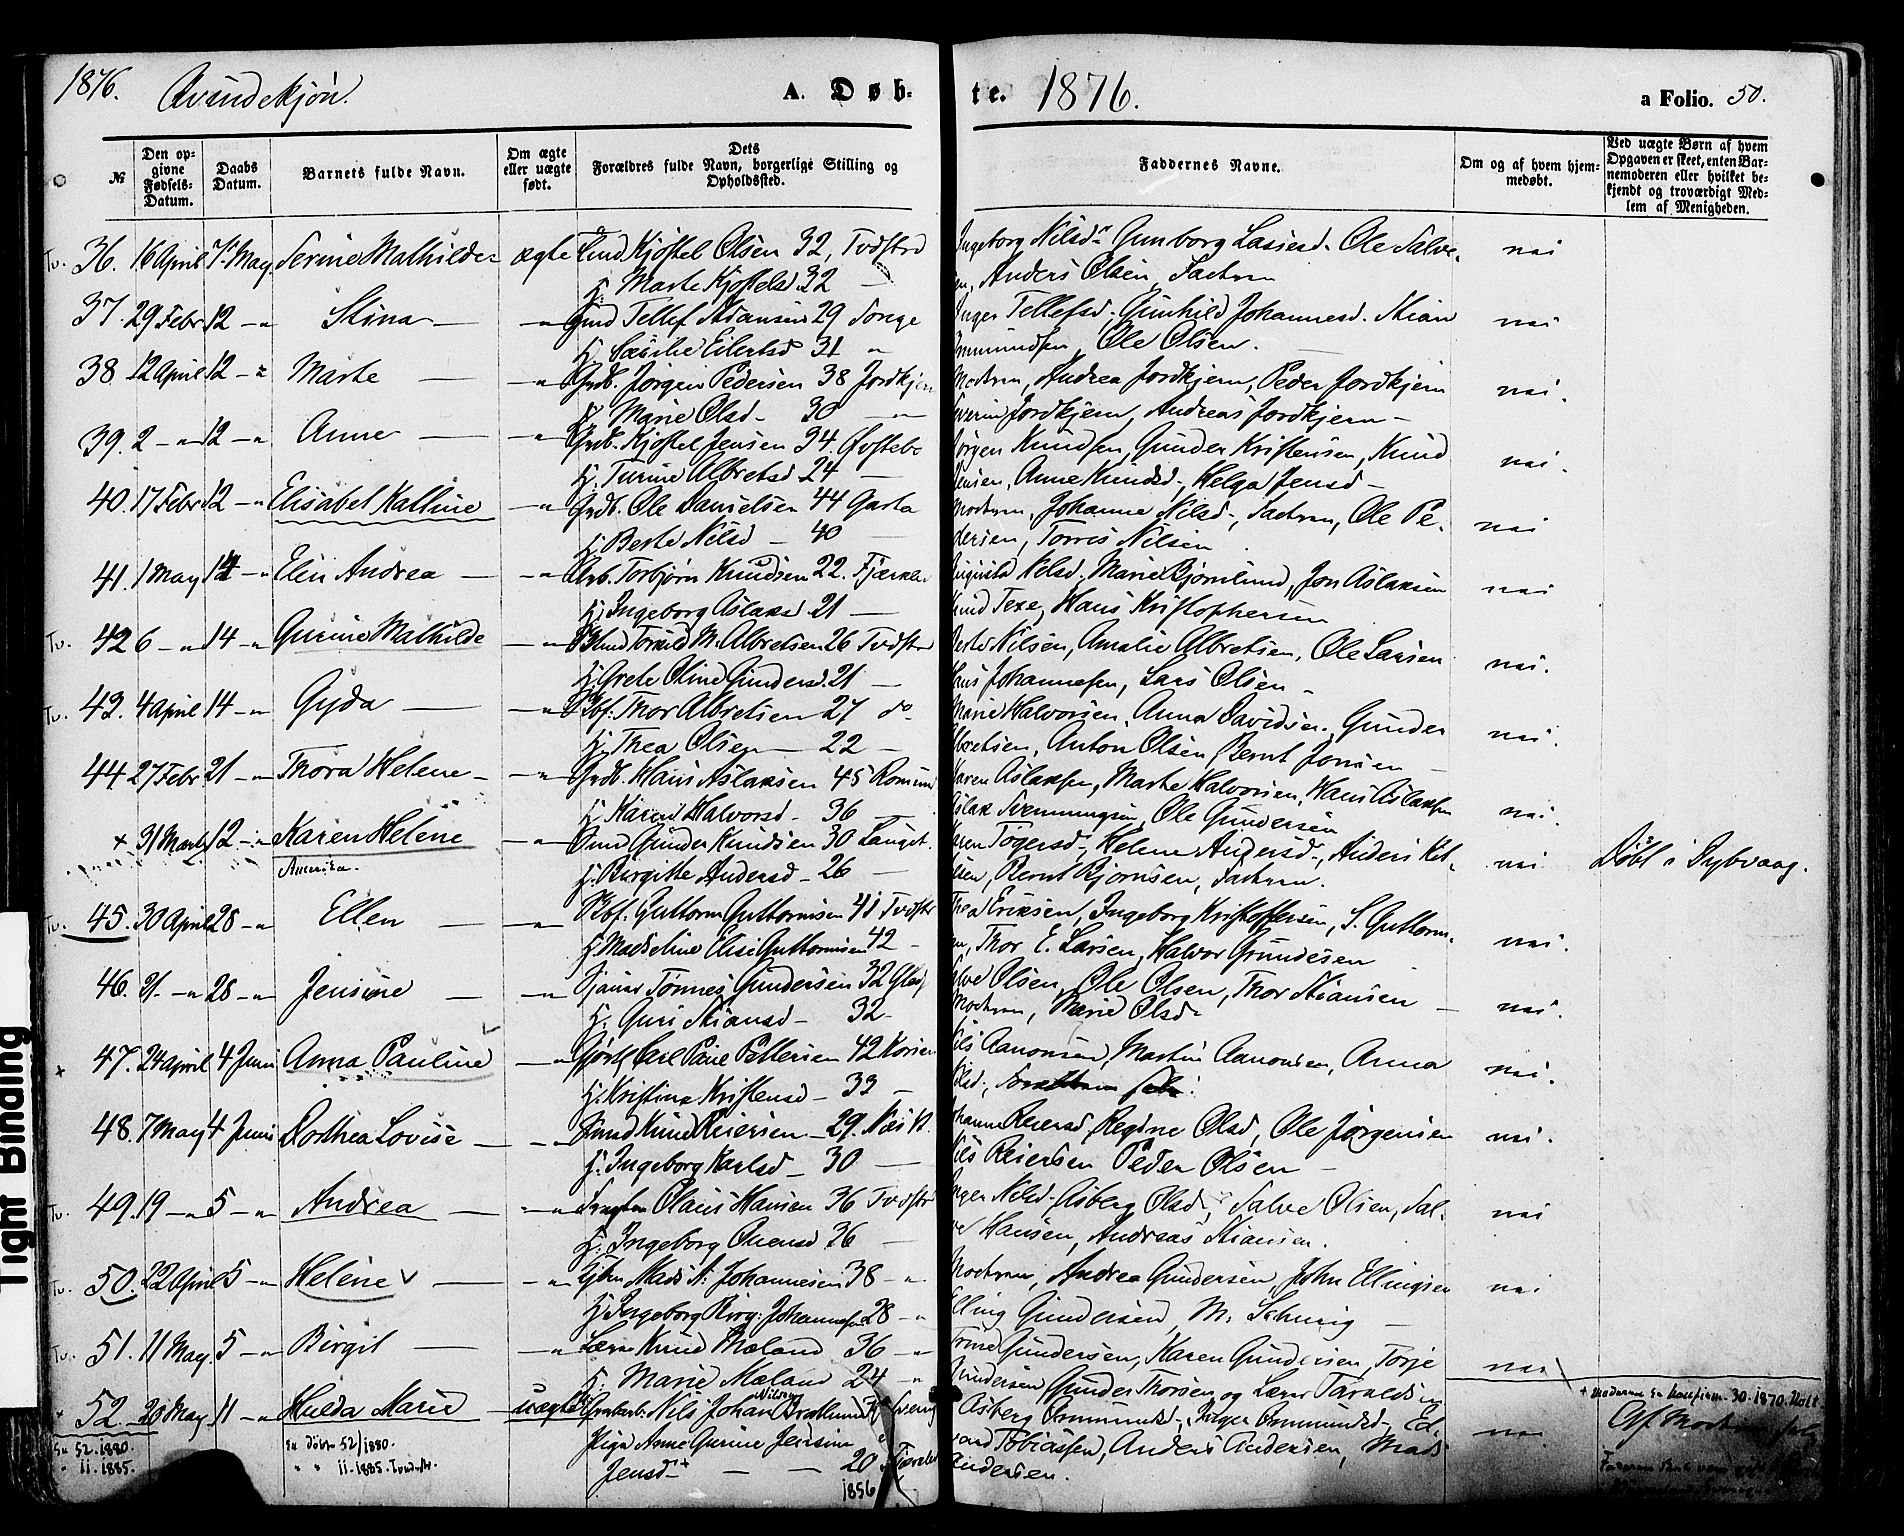 1876. Qvindekjøn. A. Døb- te. 1876. a Folio. 50.
№
Den opgivne Fødsels-Datum.
Daabs Datum.
Barnets fulde Navn.
Om ægte eller uægte født.
Dets Forældres fulde Navn, borgerlige Stilling og Opholdssted.
Faddernes Navne.
Om og af hvem hjemmedøbt.
Ved uægte Børn af hvem Opgaven er skeet, enten Barnemoderen eller hvilket bekjendt og troværdigt Medlem af Menigheden.
Tv. 36. 16 April 7 May Serine Mathilde ægte Kjøstel Olsen 32, Tvdstrd Ingeborg Nilsd. Gunborg Lasiesd. Ole Salve- nei
H. Marte Kjøstelsd. 32 — Anders Olsen, Fadren
37. 29 Febr 12 - " Stina — - " Tellef Kiansen 29 Songe Inger Tellefsd. Gunhild Johannesd. Kian nei
H. Eilertsd 31 " Ommundsen, Ole Olsen.
38 12 April 12 - " Marte — - " Grdb. Jørgen Pedersen 38 Jordkjen Modren, Andrea Jordkjern, Peder Jordkjern nei.
H. Marie Olsd - 30 — Severin Jordkjern, Andreas Jordkjern -
39. 2 - " 12 - " Anne — - " Grdb. Kjøstel Jensen 34. Østebo Jørgen Knudsen, Gunder Kristensen, Knud nei.
H. Turine Albretsd 24 — Jensen, Anne Knudsd -, Helga Jensd -
40. 17 Febr 12 - " Elisabet Kathine - " Grdb. Ole Danielsen 44 Garta Modren, Johanne Nilsd -, Fadren, Ole Pe- nei
H. Berte Nilsd — 40 — dersen, Torris Nilsen
41. 1 May 14 - " Elen Andrea — - " Torbjørn Knudsen 22. Fjærkle Augusta Nilsd. Marie Bjørnlund, Jon Aslaksen nei
H. Ingeborg Aslaksd 21 — Knud Texe, Hans Kristophersen
Tv. 42 6 - " 14 - " Gurine Mathilde - " M. Albretsen 26 Tvdstrd Berte Nilsen, Amalie Albretsen, Ole Larsen nei.
H. Grete Oline Gundersd. 21 — Hans Johannesen, Lars Olsen -
Tv. 43. 4 April 14 - " Gyda — - " Thor Albretsen 27 do. Marie Halvorsen, Anna Davidsen. Gunder nei.
H. Thea Olsen — 22 — Albretsen, Anton Olsen, Bernt Jonsen —
44. 27 Febr. 21 - " Thora Helene - - " Grdb. Hans Aslaksen 45 Romund Karen Aslaksen, Marte Halvorsen, Hans Aslaksen nei.
H. Karen Halvorsd. 36 — Aslak Svenningsen, Ole Gundersen
+ 31 Marts 12 - " Karen Helene - " Gunder Knudsen 30 Langet. Karen Tøgersd -, Helene Andersd -, Anders Kit- nei Døbt i Dybvaag.
Amerika. H. Birgitte Andersd - 26 — Bernt Bjørnsen, Fadren.
Tv. 45. 30 April 28 - " Ellen — - " Guttorm Guttormsen 41 Tvdstr Thea Eriksen, Ingeborg Kristoffersen, S. Guttorm- nei.
H. Madseline Elise Guttormsen 42 - Thor E. Larsen, Halvor Gundesen
46. 21. - " 28 - " Jensine — - " Tønnes Gundersen 32 Glad Salve Olsen, Ole Olsen, Thor Kiansen — nei.
H. Guri Kiansd - 32 - Modren, Marie Olsd -
+ 47. 24 April 4 Juni Anna Pauline - " Carl Paul Pettersen 42 Aanonsen, Martin Aanonsen, Anna nei.
H. Kristine Kristensd - 33 —
48. 7 May 4 Juni Dorthea Lovise — - " Knud Reiersen — 29. Næs Johanne Reiersd, Regine Olsd, Ole Jørgensen nei.
H. Ingeborg Karlsd — 30 — Nils Reiersen Peder Olsen —
Tv. 49. 19 - " 5 - " Andrea — - " Olaus Hansen 36 Tvdstrd Inger Nilsd. Asberg Olsd, Salve Olsen, Sal- nei
H. Ingeborg Ovensd. 36 — ve Hansen, Andreas Kiansen.
Tv. 50. 22 April 5 - " Helene — - " Mads N. Johannesen 38 - " Modren, Andrea Gundersen, John Ellingsen nei
H. Ingeborg Birg. Johannesen 28 - " Elling Gundersen, M. Schuvig —
Tv. 51. 11 May. 5 - " Birgit — - " Knud Mæland 36 - " Trine Gundersen, Karen Gundersen, Torje nei
H. Marie Mæland 24 - " Gundersen, Gunder Thorsen og Lærer Taraldsen
+ 52. 28 May. 11 - " Hulda Marie uægte Nils Johan Nilsen Asberg Ommundsd -, Inger Ommundsd -, Ed- nei + Moderen Konfirm. 30. 1870. Holt.
Pige Anne Gurine Jensine vard Tobiassen, Anders Andersen, Mads Af Mod
Jensd - + — — 20 Andersen.
Se 52. 1880. Se døbte 52/1880.
" 11. 1885. " " 11. 1885. Tvedestr.
1856
Tight Binding